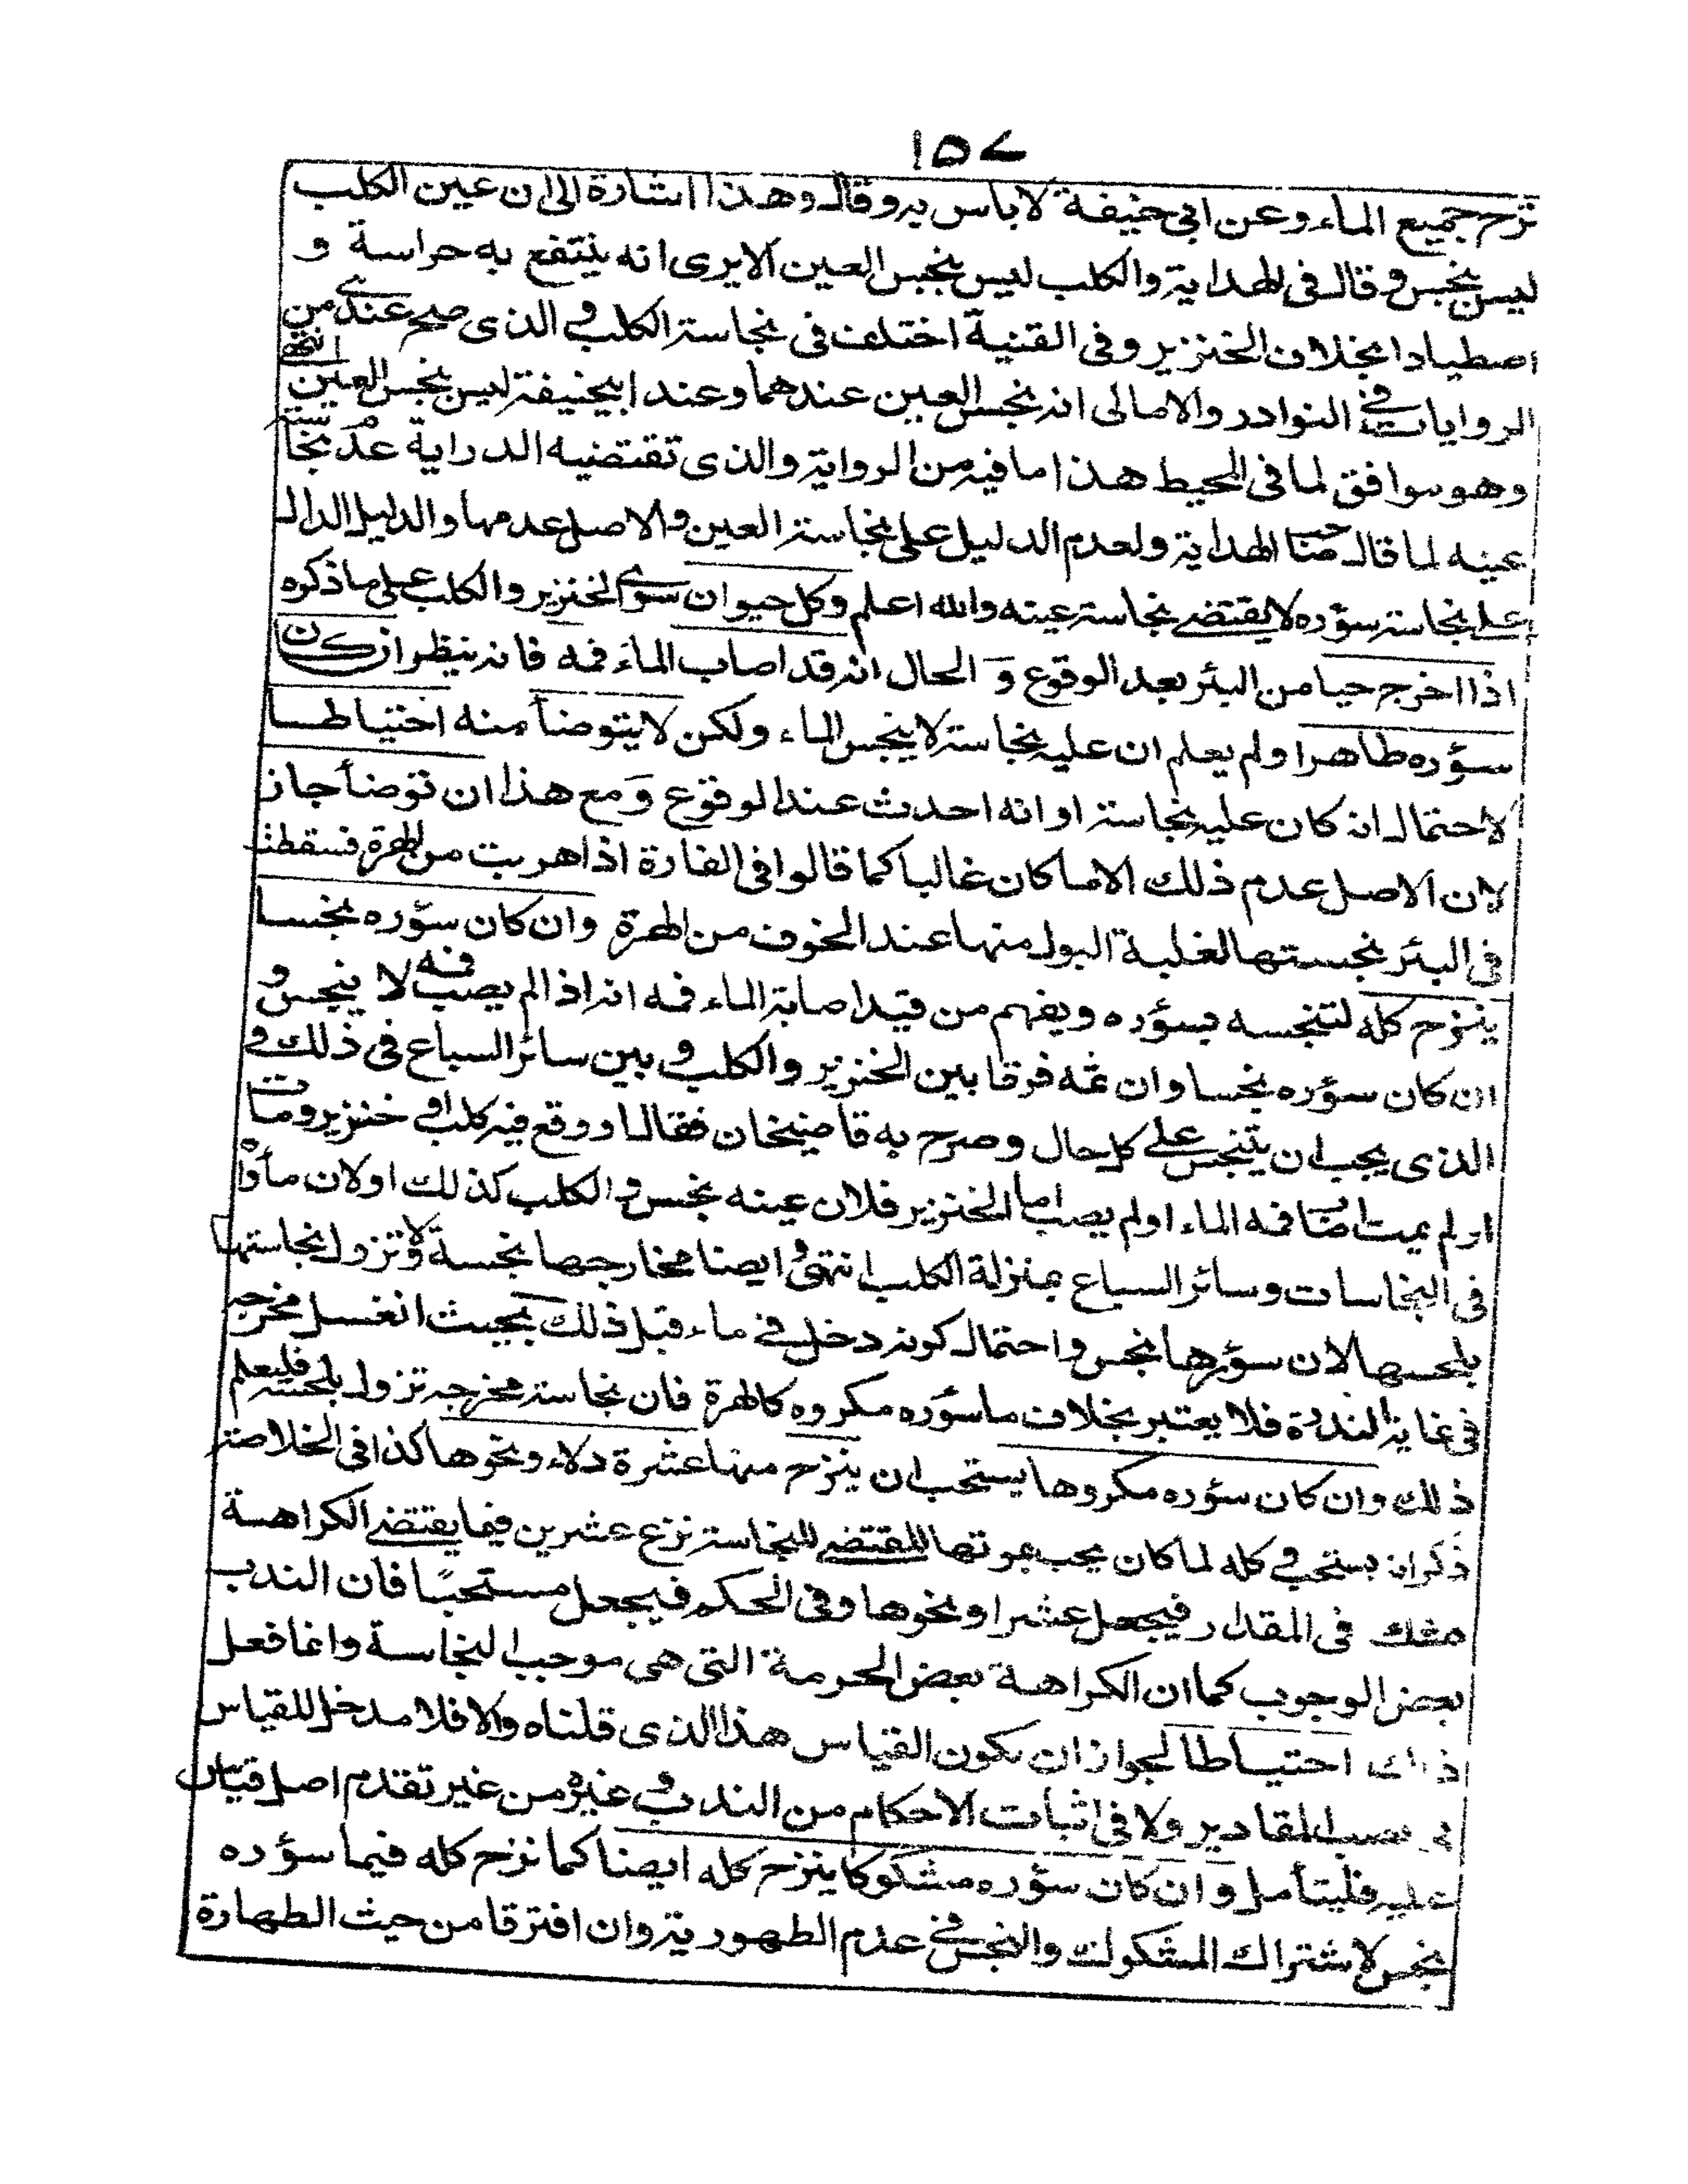 ١٥٧
نزح جميع الماء وعن ابي حنيفة لا باس به وقال وهذا اشارة الى ان عين الكلب
ليس بنجس وقال في الهداية والكلب ليس بنجس العين الا يرى انه ينتفع به حراسة و
اصطيادا بخلاف الخنزير وفى القنية اختلف فى نجاسة الكلب والذى صح عندى من
الروايات في النوادر والامالى انه نجس العين عندهما وعند ابيحنيفة ليس بنجس العين انتهى
وهو موافق لما فى المحيط هذا ما فيه من الرواية والذى تقتضيه الدراية عدم نجاسة
عينه لما قال صاحب الهداية ولعدم الدليل على نجاسة العين والاصل عدمها والدليل الدال
على نجاسة سؤره لا يقتضى نجاسة عينه والله اعلم وكل حيوان سوى الخنزير والكلب على ما ذكره
اذا اخرج حيا من البئر بعد الوقوع و الحال انه قد اصاب الماء فمه فانه ينظر ان كان
سؤره طاهرا ولم يعلم ان عليه نجاسة لا ينجس الماء ولكن لا يتوضأ منه احتياطا
لاحتمال انه كان عليه نجاسة او انه احدث عند الوقوع ومع هذا ان توضأ جاز
لان الاصل عدم ذلك الا ما كان غالبا كما قالوا فى الفارة اذا هربت من الهرة فسقطت
فى البئر نجستها لغلبة البول منها عند الخوف من الهرة وان كان سؤره نجسا
ينزح كله لتنجسه بسؤره ويفهم من قيد اصابة الماء فمه انه اذا لم يصب فمه لا ينجس و
ان كان سؤره نجسا وان ثمه فرقا بين الخنزير والكلب و بين سائر السباع فى ذلك و
الذى يجب ان يتنجس على كل حال وصرح به قاضيخان فقال او وقع فيه كلب او خنزير ومات
او لم يمت اصاب فمه الماء او لم يصب اما الخنزير فلان عينه نجس و الكلب كذلك او لان مأواه
فى النجاسات وسائر السباع بمنزلة الكلب انتهى و ايضا مخارجها نجسة ولا تزول نجاستها
بلحسها لان سؤرها نجس واحتمال كونه دخل فى ماء قبل ذلك بحيث انغسل مخرجه
فى غاية الندرة فلا يعتبر بخلاف ما سؤره مكروه كالهرة فان نجاسة مخرجه تزول بلحسه فليعلم
ذلك وان كان سؤره مكروها يستحب ان ينزح منها عشرة دلاء ونحوها كذا فى الخلاصة
ذكر انه يستحب فى كله لما كان يجب بموتها المقتضى للنجاسة نزع عشرين فيما يقتضى الكراهة
فى المقدار فيجعل عشرا ونحوها وفى الحكم فيجعل مستحبا فان الندب
بعض الوجوب كما ان الكراهة بعض الحرمة التى هى موجب النجاسة وانما فعل
ذلك احتياطا لجواز ان يكون القياس هذا الذى قلناه والا فلا مدخل للقياس
فى نصب المقادير ولا فى اثبات الاحكام من الندب و غيره من غير تقدم اصل قياس
عليه فليتأمل وان كان سؤره مشكوكا ينزح كله ايضا كما نزح كله فيما سؤره
نجس لاشتراك المشكوك والنجس فى عدم الطهورية وان افترقا من حيث الطهارة